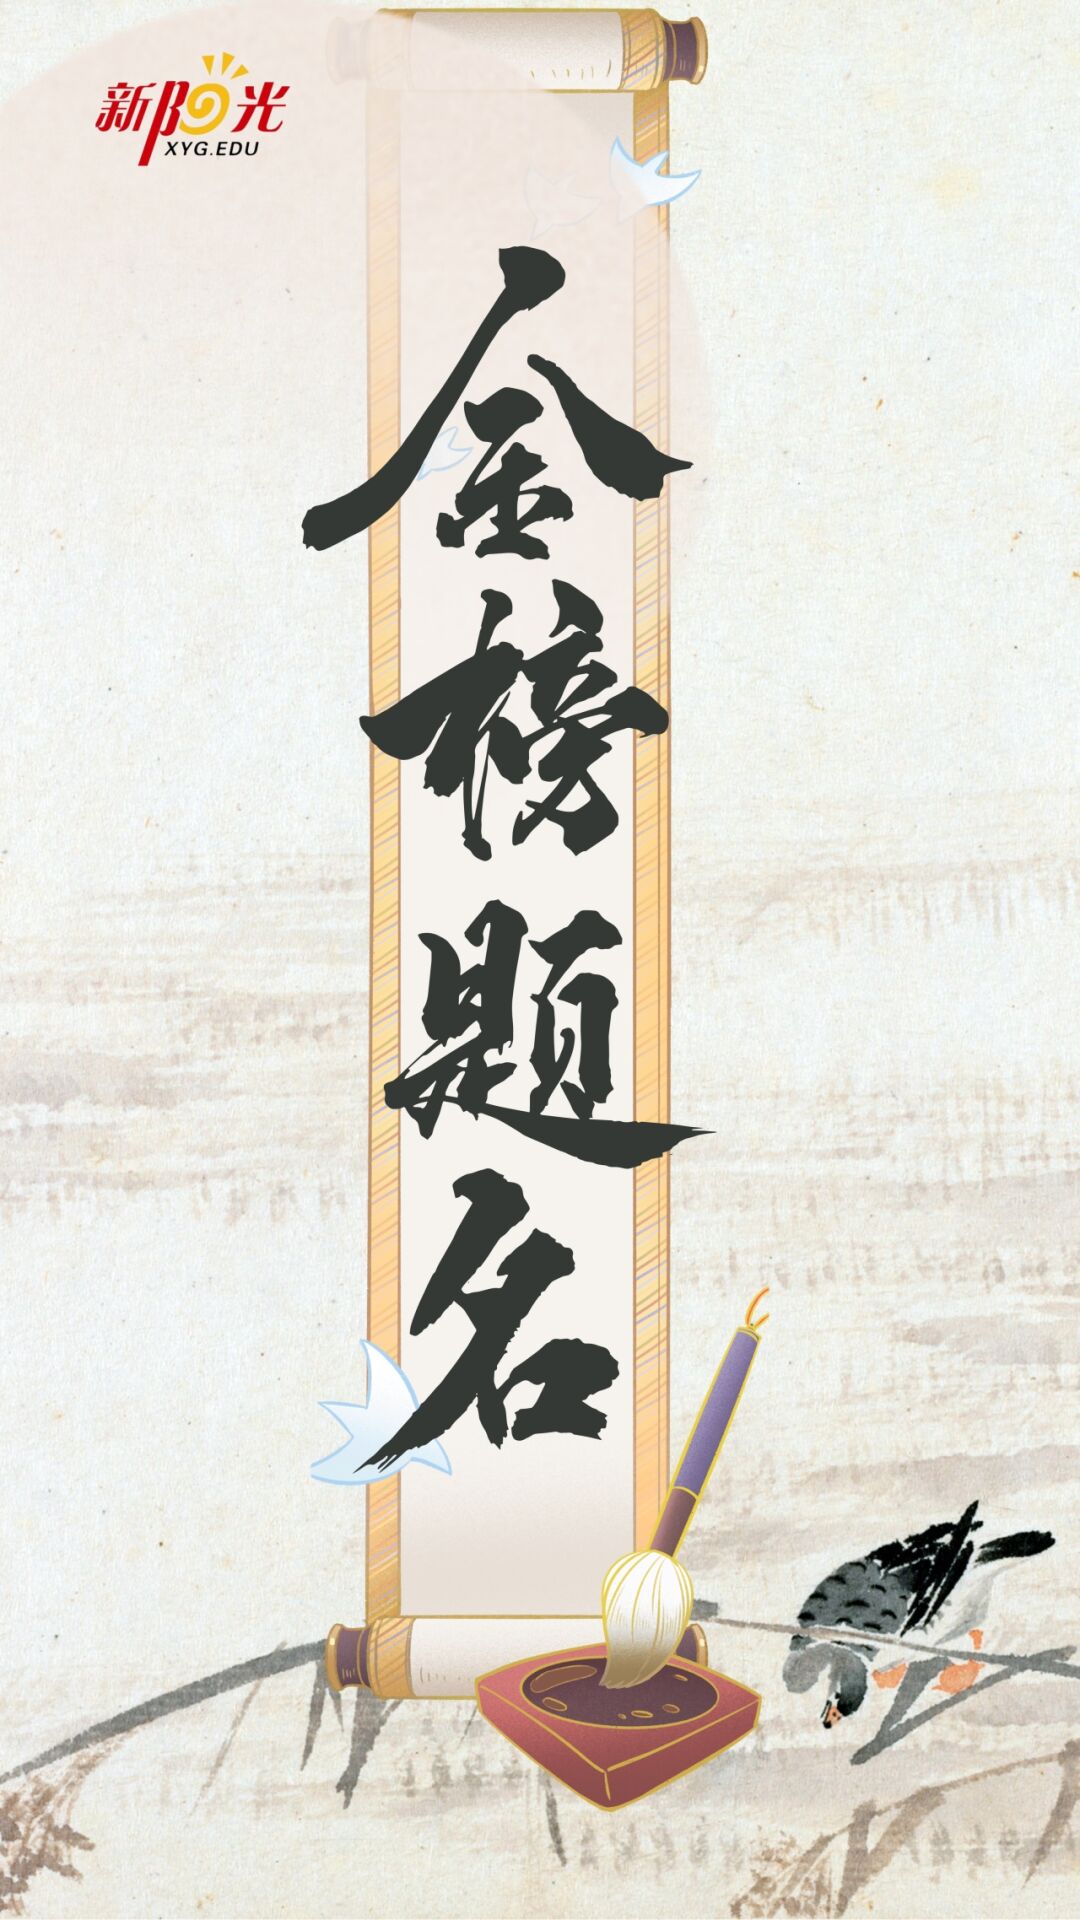 新阳光
XYG.EDU
金榜题名